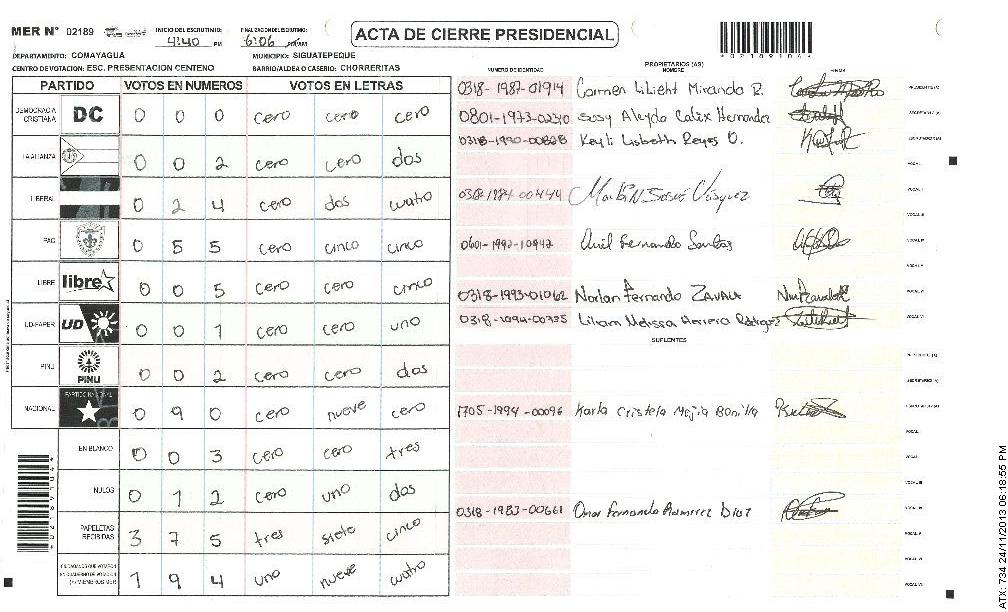 MER N° 02189
INICIO DEL ESCRUTINIO: 4:40 PM
FINALIZACION DEL ESCRUTINIO: 6:06
ACTA DE CIERRE PRESIDENCIAL
DEPARTAMENTO: COMAYAGUA
MUNICIPIO: SIGUATEPEQUE
CENTRO DE VOTACION: ESC. PRESENTACION CENTENO
BARRIO/ALDEA O CASERIO: CHORRERITAS
PARTIDO VOTOS EN NUMEROS VOTOS EN LETRAS
DEMOCRACIA CRISTIANA DC 0 0 0 cero cero cero
LA ALIANZA 0 0 2 cero cero dos
LIBERAL 0 2 4 cero dos cuatro
PAC 0 5 5 cero cinco cinco
LIBRE libre 0 0 5 cero cero cinco
UD-FAPER UD 0 0 1 cero cero uno
PINU PINU 0 0 2 cero cero dos
NACIONAL PARTIDO NACIONAL 0 9 0 cero nueve cero
EN BLANCO 0 0 3 cero cero tres
NULOS 0 1 2 cero uno dos
PAPELETAS RECIBIDAS 3 7 5 tres siete cinco
CIUDADANOS QUE VOTARON EN CUADERNO DE VOTACION (+) MIEMBROS MER 1 9 4 uno nueve cuatro
NUMERO DE IDENTIDAD
PROPIETARIOS (AS)
NOMBRE
FIRMA
0318-1987-01914 Carmen Lilieht Miranda R.
0801-1973-02340 Susy Aleyda Calix Hernandez
0318-1990-00828 Keyli Lisbeth Reyes O.
0318-1984-00444 Martin Josué Vásquez
0601-1992-10942 Anil Fernando Santos
0318-1993-01062 Norlan Fernando ZAVALA
0318-1994-00735 Liliam Melissa Herrera Rodriguez
SUPLENTES
1705-1994-00096 Karla Cristela Mejia Bonilla
0318-1983-00661 Omar Fernando Ramirez Diaz
ATX: 734 24/11/2013 06:18:55 PM